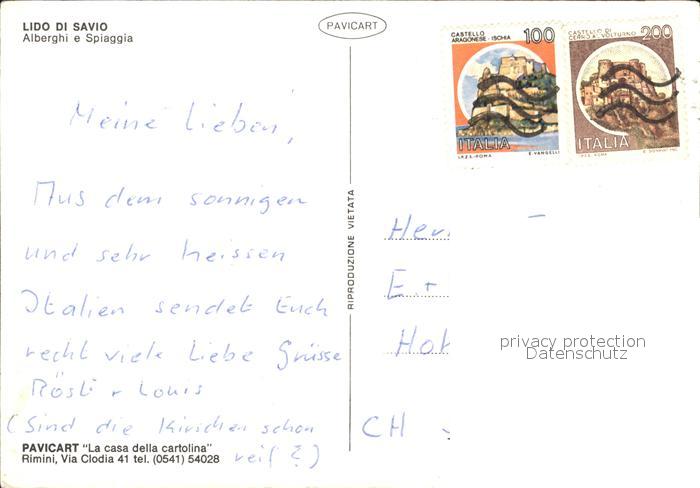 LIDO DI SAVIO
Alberghi e Spiaggia
PAVICART
CASTELLO
ARAGONESE - ISCHIA
100
ITALIA
I.P.Z.S. - ROMA E. VANGELLI
CASTELLO DI
CERRO AL VOLTURNO
200
ITALIA
I.P.Z.S. - ROMA
Meine Lieben,
Aus dem sonnigen
und sehr heissen
Italien sendet Euch
recht viele Liebe Grüsse
Rösli + Louis
(Sind die Kirschen schon
reif?)
RIPRODUZIONE VIETATA
Her
E. +
Hot
CH
privacy protection
Datenschutz
PAVICART "La casa della cartolina"
Rimini, Via Clodia 41 tel. (0541) 54028